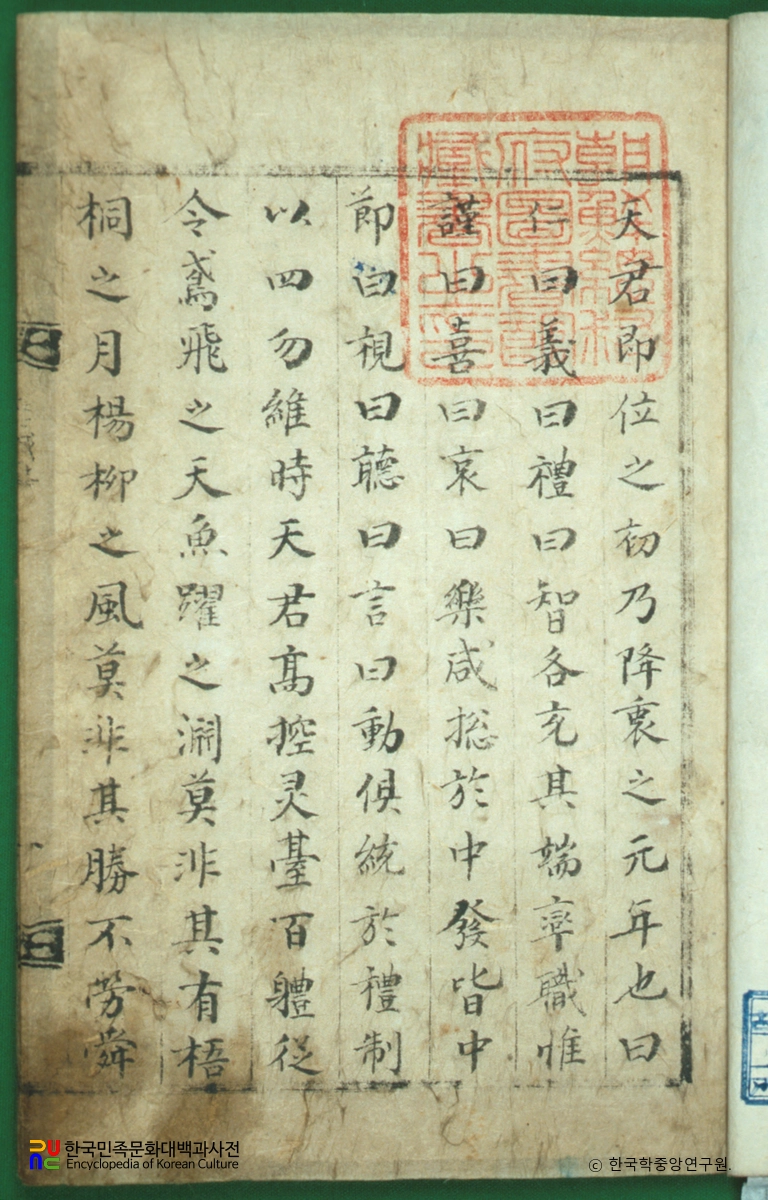 天君即位之初乃降衷之元年也曰
仁曰義曰禮曰智各充其端率職惟
謹曰喜曰哀曰樂咸捴於中發皆中
節曰視曰聽曰言曰動俱統於禮制
以四勿維時天君高控灵臺百體從
令鳶飛之天魚躍之淵莫非其有梧
桐之月楊柳之風莫非其勝不勞舜
朝鮮總督
府圖書館
藏書之印
한국민족문화대백과사전
Encyclopedia of Korean Culture
© 한국학중앙연구원.